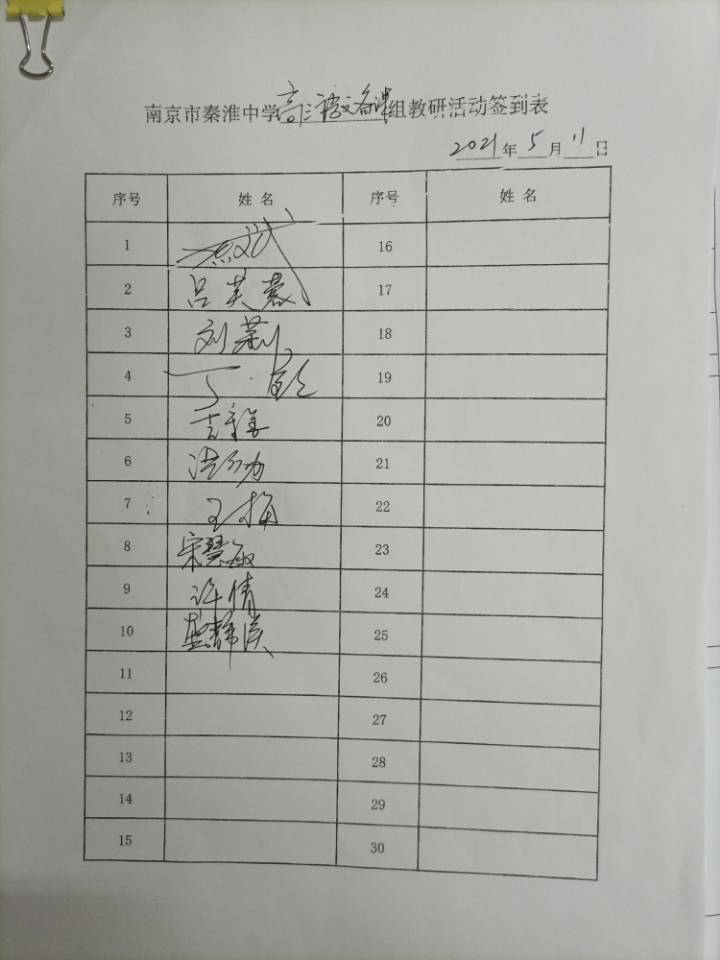 南京市秦淮中学高三语文备课组教研活动签到表
2021年5月11日
序号 姓名 序号 姓名
1 16
2 吕芙蓉 17
3 刘莉 18
4 丁 19
5 20
6 洪 21
7 王梅 22
8 宋慧敏 23
9 许倩 24
10 25
11 26
12 27
13 28
14 29
15 30